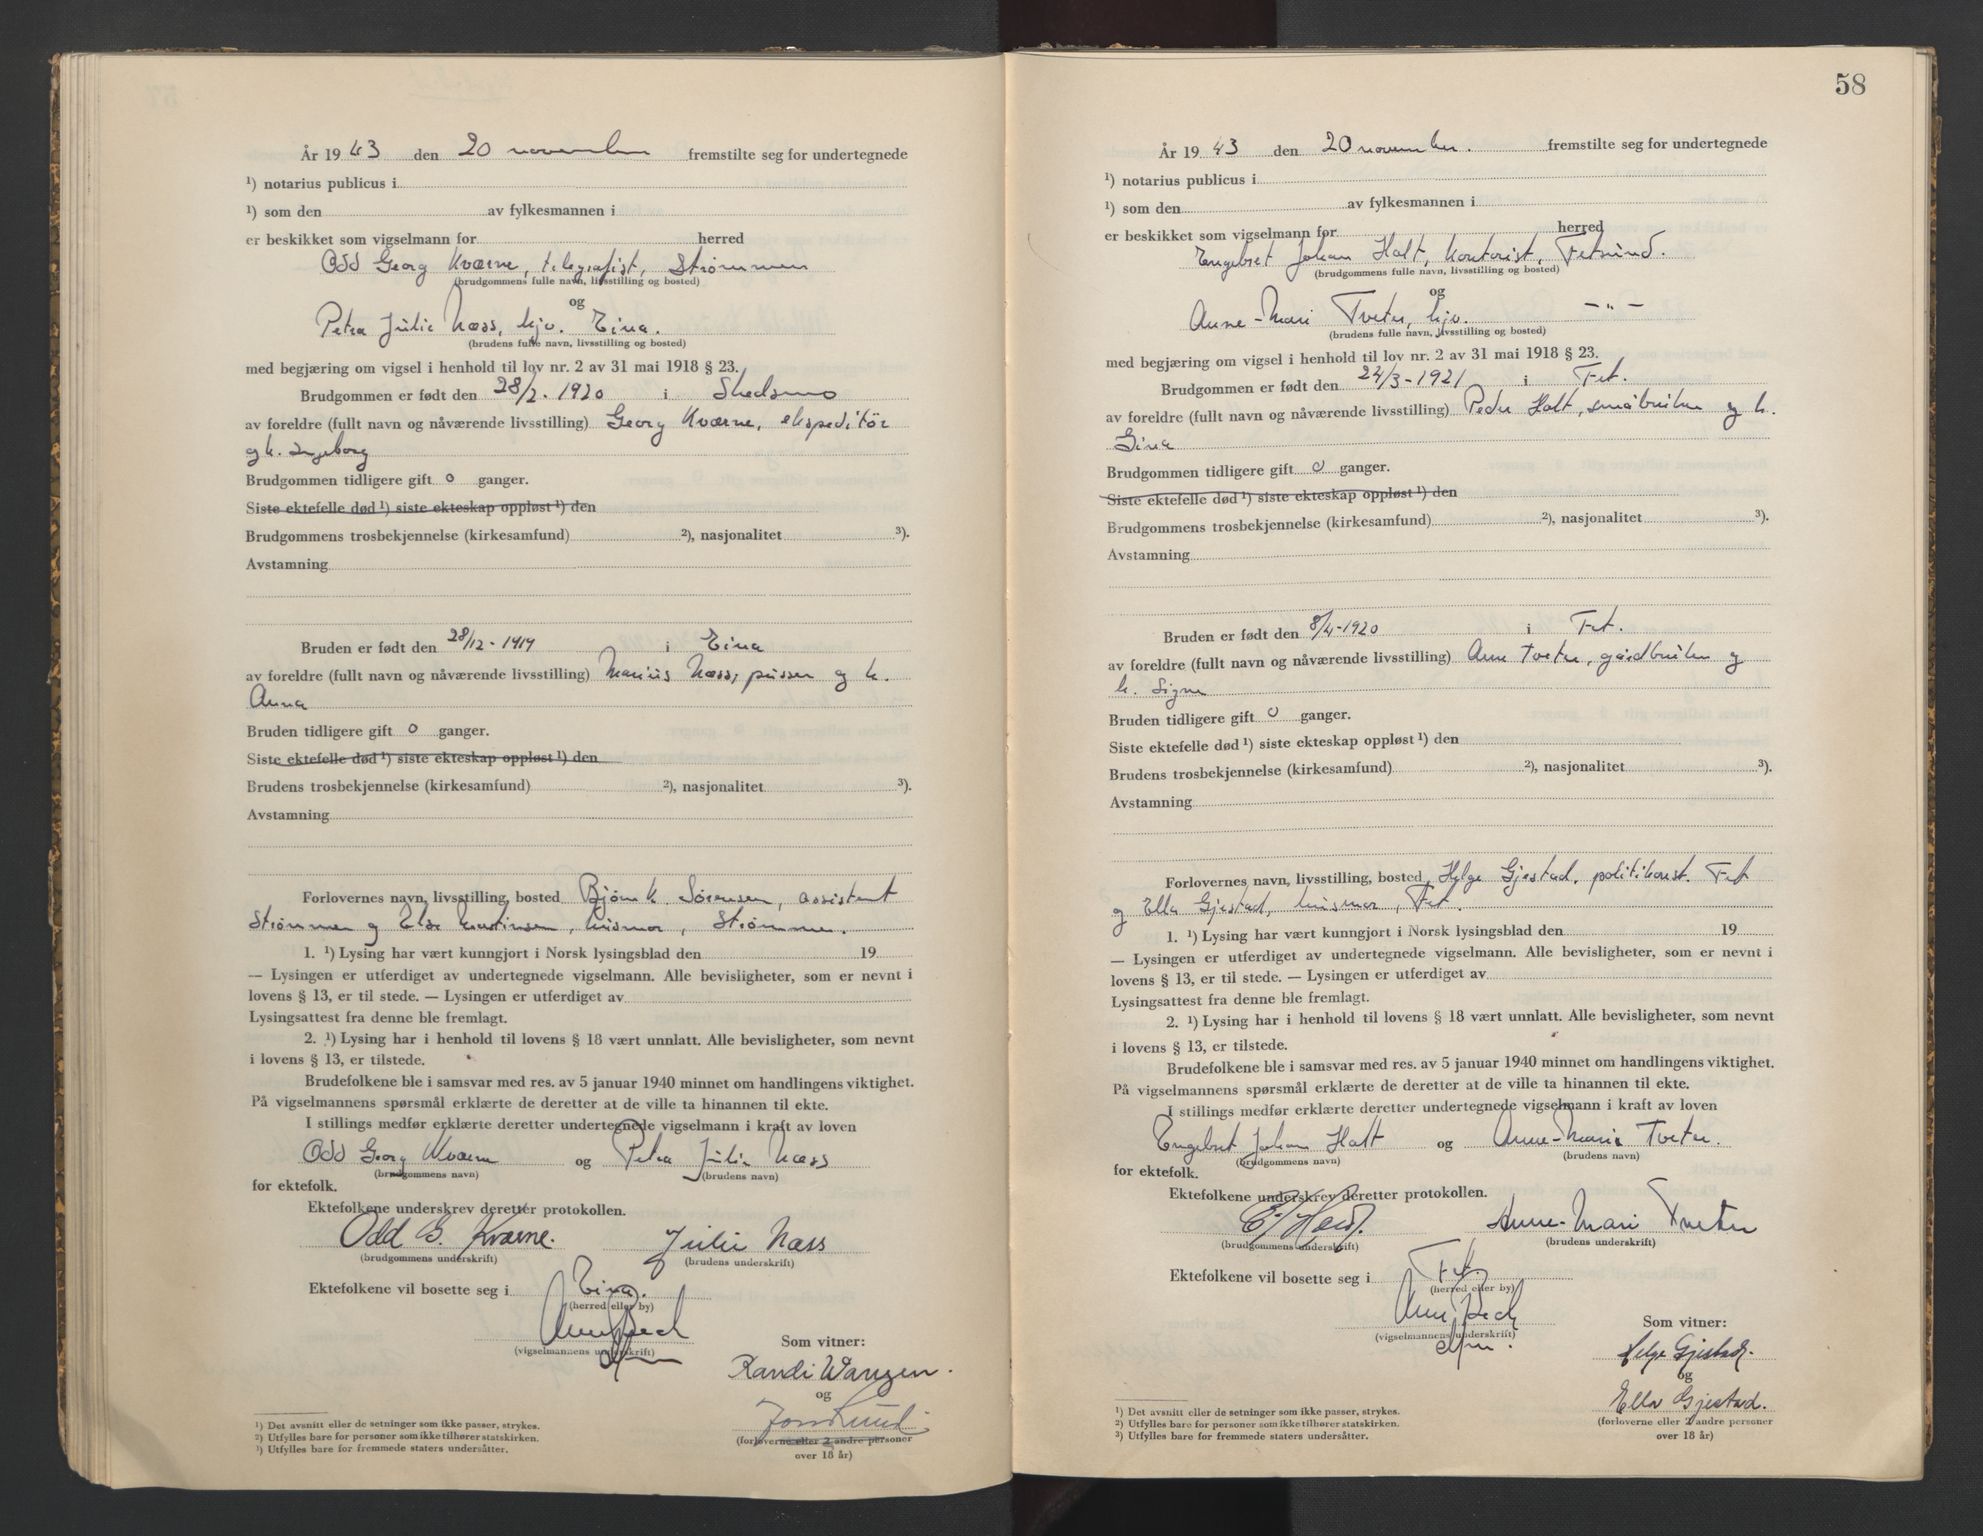 År 1943 den 20 november fremstilte seg for undertegnede
¹) notarius publicus i
¹) som den av fylkesmannen i
er beskikket som vigselmann for herred
Odd Georg Kværne, telegrafist, Strømmen
(brudgommens fulle navn, livsstilling og bosted)
og
Petra Julie Næss, hjv. Eina.
(brudens fulle navn, livsstilling og bosted)
med begjæring om vigsel i henhold til lov nr. 2 av 31 mai 1918 § 23.
Brudgommen er født den 28/2-1920 i Skedsmo
av foreldre (fullt navn og nåværende livsstilling) Georg Kværne, ekspeditör
og h. Ingeborg
Brudgommen tidligere gift 0 ganger.
Siste ektefelle død ¹) siste ekteskap oppløst ¹) den
Brudgommens trosbekjennelse (kirkesamfund) ²), nasjonalitet ³).
Avstamning
Bruden er født den 28/12-1919 i Eina
av foreldre (fullt navn og nåværende livsstilling) Marius Næss, pusser og h.
Anna
Bruden tidligere gift 0 ganger.
Siste ektefelle død ¹) siste ekteskap oppløst ¹) den
Brudens trosbekjennelse (kirkesamfund) ²), nasjonalitet ³).
Avstamning
Forlovernes navn, livsstilling, bosted Bjørn H. Sörensen, assistent
Strømmen og Else husmor, Strømmen.
1. ¹) Lysing har vært kunngjort i Norsk lysingsblad den 19
— Lysingen er utferdiget av undertegnede vigselmann. Alle bevisligheter, som er nevnt i
lovens § 13, er til stede. — Lysingen er utferdiget av
Lysingsattest fra denne ble fremlagt.
2. ¹) Lysing har i henhold til lovens § 18 vært unnlatt. Alle bevisligheter, som nevnt
i lovens § 13, er tilstede.
Brudefolkene ble i samsvar med res. av 5 januar 1940 minnet om handlingens viktighet.
På vigselmannens spørsmål erklærte de deretter at de ville ta hinannen til ekte.
I stillings medfør erklærte deretter undertegnede vigselmann i kraft av loven
Odd Georg Kværne og Petra Julie Næss
(brudgommens navn) (brudens navn)
for ektefolk.
Ektefolkene underskrev deretter protokollen.
Odd G. Kværne. Julie Næss
(brudgommens underskrift) (brudens underskrift)
Ektefolkene vil bosette seg i Eina.
(herred eller by)
(vigselmannens underskrift)
Som vitner:
Randi Wangen.
og
Lund
(forloverne eller 2 andre personer
over 18 år)
¹) Det avsnitt eller de setninger som ikke passer, strykes.
²) Utfylles bare for personer som ikke tilhører statskirken.
³) Utfylles bare for fremmede staters undersåtter.
58
År 1943 den 20 november. fremstilte seg for undertegnede
¹) notarius publicus i
¹) som den av fylkesmannen i
er beskikket som vigselmann for herred
Engebret Johan Holt, kontorist, Fetsund.
(brudgommens fulle navn, livsstilling og bosted)
og
Anne-Mari Tveter, hjv. — " —
(brudens fulle navn, livsstilling og bosted)
med begjæring om vigsel i henhold til lov nr. 2 av 31 mai 1918 § 23.
Brudgommen er født den 24/3-1921 i Fet.
av foreldre (fullt navn og nåværende livsstilling) Peder Holt, småbruker og h.
Gina
Brudgommen tidligere gift 0 ganger.
Siste ektefelle død ¹) siste ekteskap oppløst ¹) den
Brudgommens trosbekjennelse (kirkesamfund) ²), nasjonalitet ³).
Avstamning
Bruden er født den 8/4-1920 i Fet.
av foreldre (fullt navn og nåværende livsstilling) Arne Tveter, gårdbruker og
h. Signe
Bruden tidligere gift 0 ganger.
Siste ektefelle død ¹) siste ekteskap oppløst ¹) den
Brudens trosbekjennelse (kirkesamfund) ²), nasjonalitet ³).
Avstamning
Forlovernes navn, livsstilling, bosted Helge Gjestad, politikonst. Fet
og Ella Gjestad, husmor, Fet.
1. ¹) Lysing har vært kunngjort i Norsk lysingsblad den 19
— Lysingen er utferdiget av undertegnede vigselmann. Alle bevisligheter, som er nevnt i
lovens § 13, er til stede. — Lysingen er utferdiget av
Lysingsattest fra denne ble fremlagt.
2. ¹) Lysing har i henhold til lovens § 18 vært unnlatt. Alle bevisligheter, som nevnt
i lovens § 13, er tilstede.
Brudefolkene ble i samsvar med res. av 5 januar 1940 minnet om handlingens viktighet.
På vigselmannens spørsmål erklærte de deretter at de ville ta hinannen til ekte.
I stillings medfør erklærte deretter undertegnede vigselmann i kraft av loven
Engebret Johan Holt og Anne-Marie Tveter.
(brudgommens navn) (brudens navn)
for ektefolk.
Ektefolkene underskrev deretter protokollen.
Anne-Mari Tveter
(brudgommens underskrift) (brudens underskrift)
Ektefolkene vil bosette seg i Fet.
(herred eller by)
(vigselmannens underskrift)
Som vitner:
Helge Gjestad.
og
Ella Gjestad.
(forloverne eller 2 andre personer
over 18 år)
¹) Det avsnitt eller de setninger som ikke passer, strykes.
²) Utfylles bare for personer som ikke tilhører statskirken.
³) Utfylles bare for fremmede staters undersåtter.